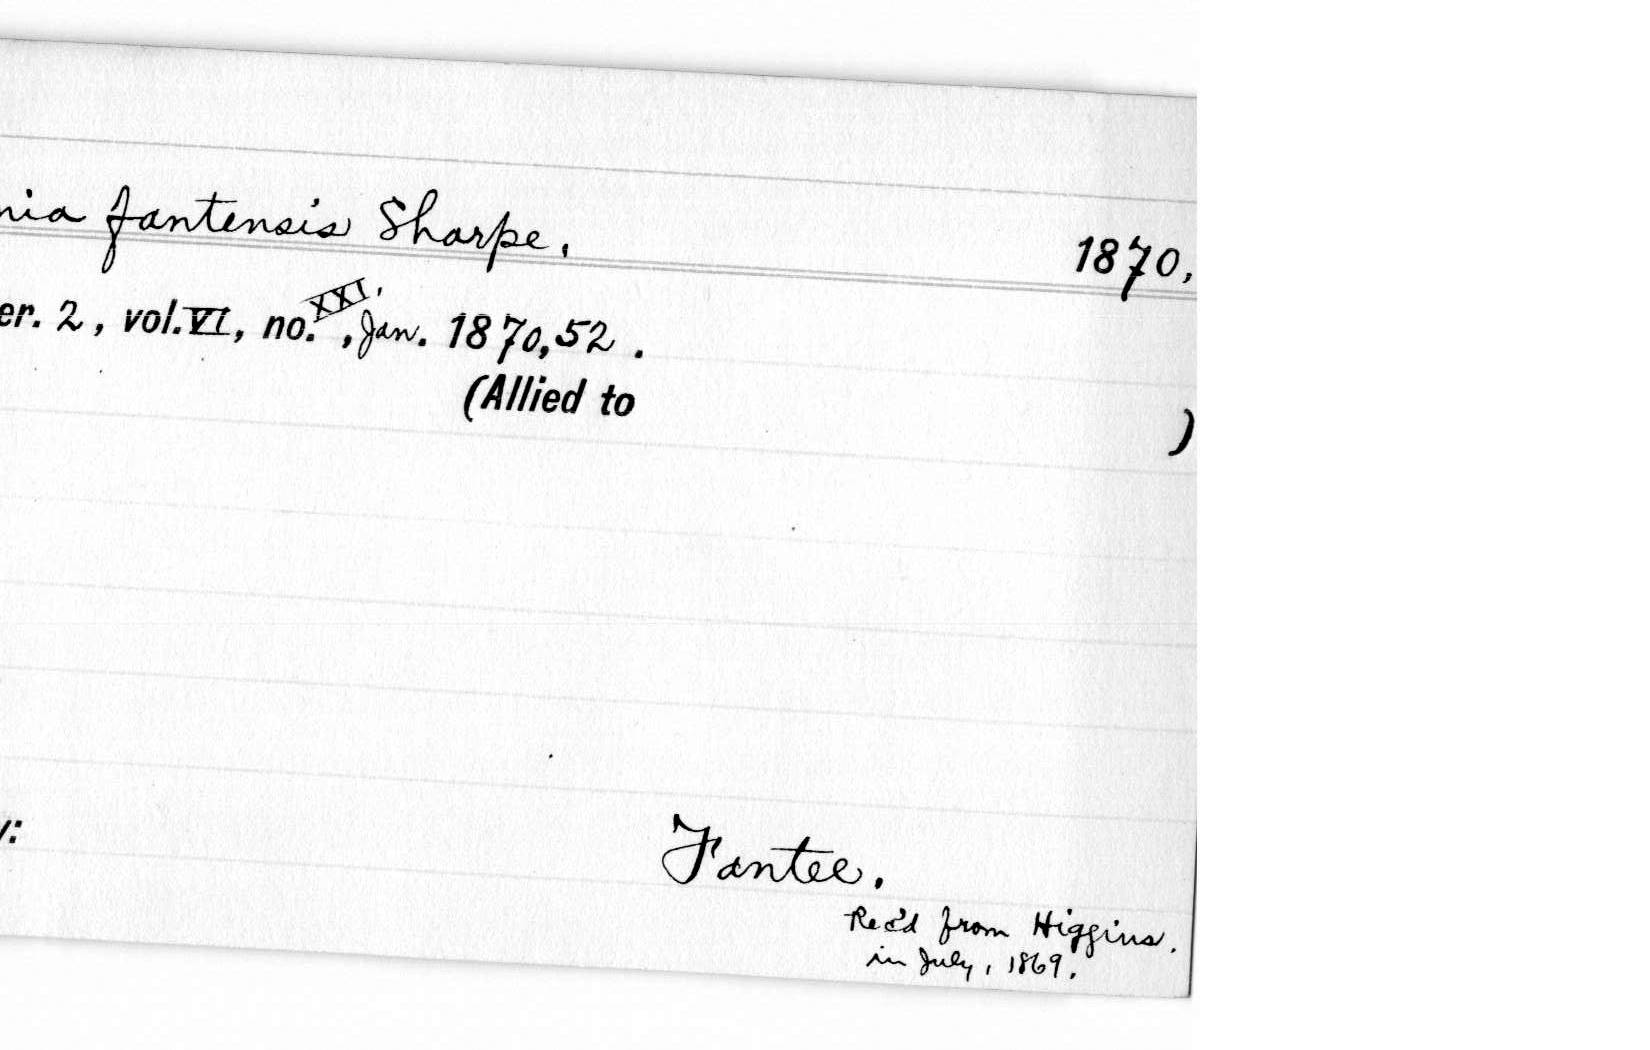 nia fantensis Sharpe. 1870,
er. 2, vol. VI, no. XXI., Jan. 1870, 52.
(Allied to )
y:
Fantee.
Rec'd from Higgins.
in July, 1869.